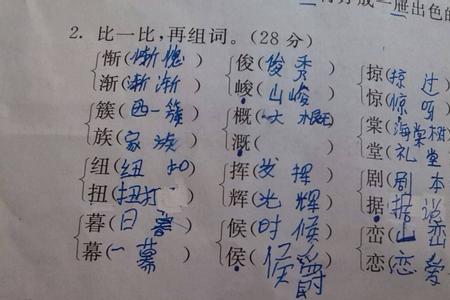 出色的
2. 比一比，再组词。(28 分)
惭(惭愧) 俊(俊秀) 掠(掠过
渐(渐渐) 峻(山峻) 惊(惊呀
簇(一簇) 概(大概) 棠(海棠树
族(家族) 溉( ) 堂(礼堂
纽(纽扣) 挥(发挥) 剧(剧本
扭(扭打) 辉(光辉) 据(据说
暮(日暮) 候(时候) 峦(山峦
幕(一幕) 侯(侯爵) 恋(恋爱